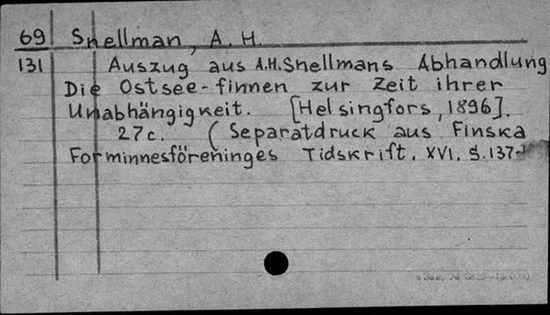 69 Snellman, A. H.
131 Auszug aus A.H.Snellmans Abhandlung
Die Ostsee-finnen zur Zeit ihrer
Unabhängigkeit. [Helsingfors, 1896].
27c. (Separatdruck aus Finska
Forminnesföreninges Tidskrift. XVI. S.137-